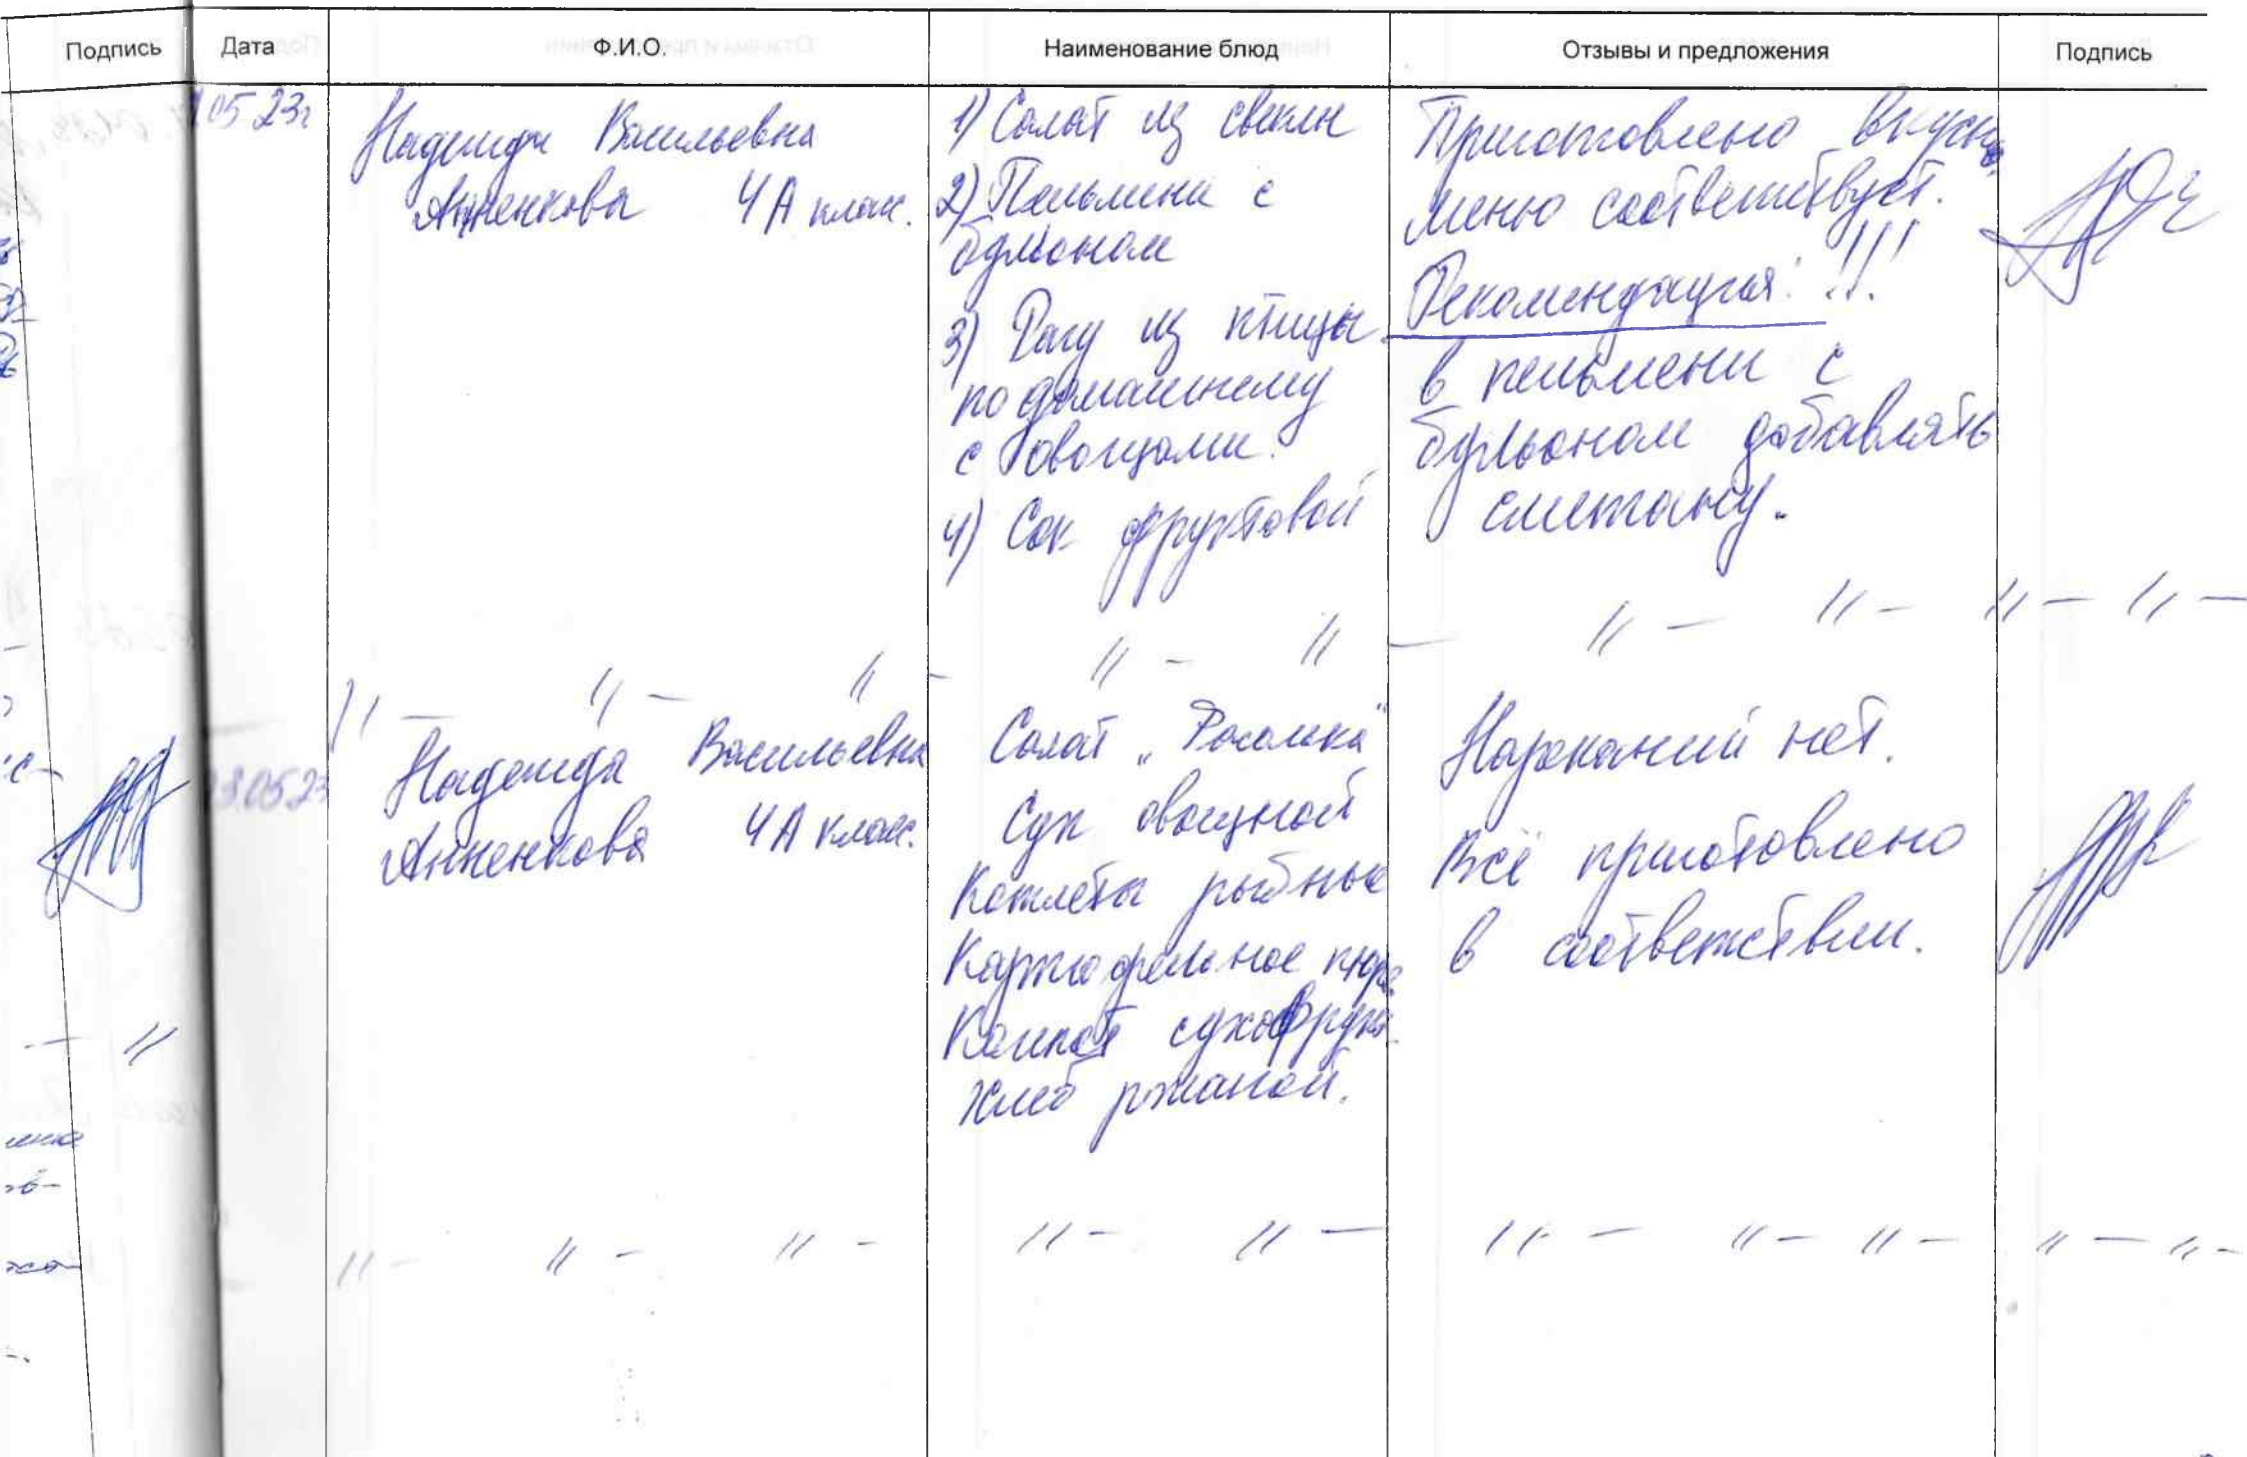 Подпись Дата Ф.И.О. Наименование блюд Отзывы и предложения Подпись
05 23г
Надежда Васильевна
Анненкова 4 А класс.
1) Салат из свеклы
2) Пельмени с
бульоном
3) Рагу из птицы
по домашнему
с овощами.
4) Сок фруктовой
Приготовлено вкусно,
меню соответствует.
Рекомендация: !!!
в пельмени с
бульоном добавлять
сметану.
// — // — // — // — // — // — // — // — // —
3.05.23
Надежда Васильевна
Анненкова 4 А класс.
Салат „Росинка"
Суп овощной
Котлеты рыбные
Картофельное пюре.
Компот сухофрукт.
Хлеб ржаной.
Нареканий нет.
Всё приготовлено
в соответствии.
// — // — // — // — // — // — // — // — // — // —